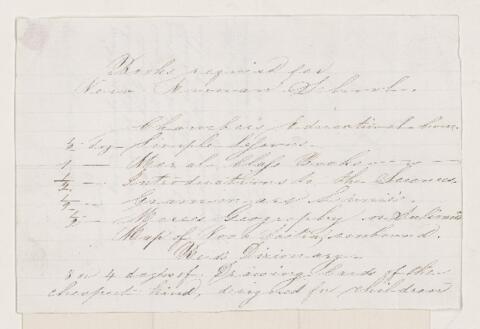 Books required for
New Norman School.
Chamber's Educational Course.
½ dz — Simple Lessons.
1 — Moral Class Books —
½ — Introductions to the Sciences.
½ — Grammars
½ — Geography
Map of unbound.
Reid's Dictionary
3 or 4 dozen of Drawing Cards of the
cheapest kind, designed for children